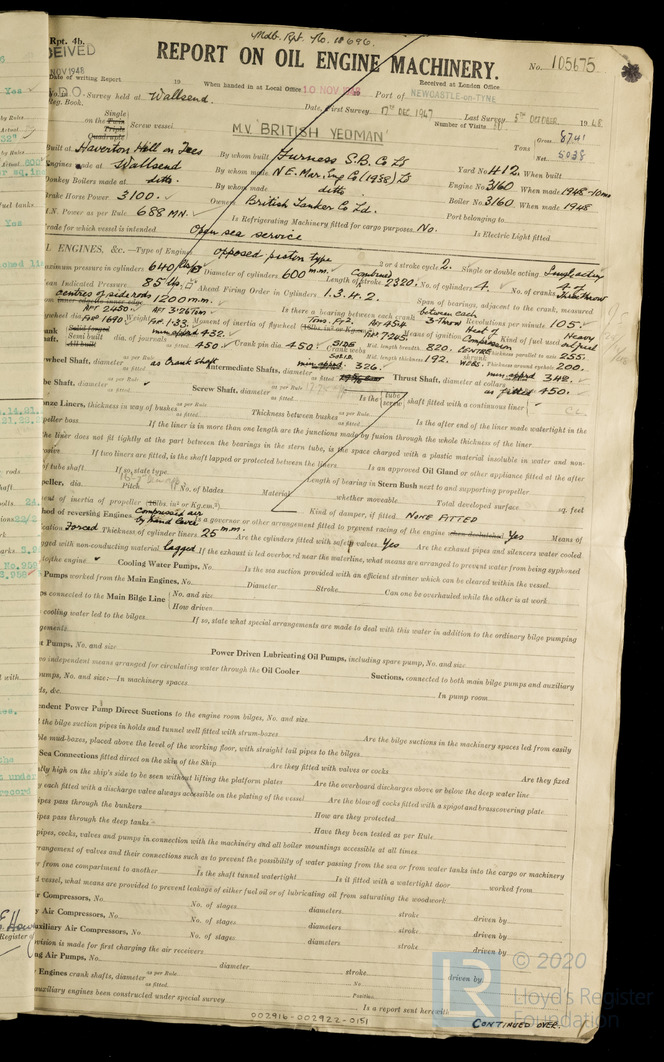 Mdb. Rpt. No. 18696.
Rpt. 4b.
REPORT ON OIL ENGINE MACHINERY.
No. 105675
NOV 1948
Date of writing Report 19 When handed in at Local Office 10 NOV Port of NEWCASTLE-on-TYNE
Received at London Office
No. in Survey held at Wallsend. Date, First Survey 17th DEC 1947 Last Survey 5th OCTOBER 1948
Reg. Book. Number of Visits
Single
on the Twin
Triple
Quadruple
Screw vessel M.V. 'BRITISH YEOMAN'
Tons Gross 8741
Net 5038
Built at Haverton Hill on Tees By whom built Furness S.B. Co Ld Yard No 412. When built
Engines made at Wallsend By whom made N.E. Mar. Eng Co (1938) Ld Engine No 3160 When made 1948-10mo
Donkey Boilers made at ditto. By whom made ditto. Boiler No 3160. When made 1948
Brake Horse Power 3100. Owners British Tanker Co Ld. Port belonging to
M.N. Power as per Rule 688 MN. Is Refrigerating Machinery fitted for cargo purposes No. Is Electric Light fitted
Trade for which vessel is intended Open sea service
OIL ENGINES, &c.—Type of Engines opposed piston type 2 or 4 stroke cycle 2. Single or double acting Single acting
Maximum pressure in cylinders 640 Diameter of cylinders 600 m.m. Length of stroke Combined 2320. No. of cylinders 4. No. of cranks 4 of three throw
Mean Indicated Pressure 85 Ahead Firing Order in Cylinders 1.3.4.2. Span of bearings, adjacent to the crank, measured
centres of side rods 1200 m.m. Is there a bearing between each crank between each 3-Throw Revolutions per minute 105
Flywheel dia. AFT 2450 FOR 1690. Weight AFT 3.26 Tons FOR 1.33. Moment of inertia of flywheel AFT 454 FOR 7245 Means of ignition Heat of Compression Kind of fuel used Heavy oil fuel
Crank shaft, Solid forged Semi built All built dia. of journals as per Rule as fitted 450. Crank pin dia. 450. Crank webs SIDE Mid. length breadth 820. CENTRE WEBS Thickness parallel to axis 255.
Mid. length thickness 192. shrunk Thickness around eyehole 200.
Flywheel Shaft, diameter as per Rule as fitted as Crank shaft Intermediate Shafts, diameter as per Rule as fitted 326. Thrust Shaft, diameter at collars 342. as fitted 450.
Tube Shaft, diameter as per Rule as fitted Screw Shaft, diameter as per Rule as fitted Is the tube screw shaft fitted with a continuous liner
Bronze Liners, thickness in way of bushes as per Rule as fitted Thickness between bushes as per Rule as fitted Is the after end of the liner made watertight in the
propeller boss If the liner is in more than one length are the junctions made by fusion through the whole thickness of the liner
If the liner does not fit tightly at the part between the bearings in the stern tube, is the space charged with a plastic material insoluble in water and non-
corrosive If two liners are fitted, is the shaft lapped or protected between the liners Is an approved Oil Gland or other appliance fitted at the after
end of tube shaft If so, state type Length of bearing in Stern Bush next to and supporting propeller
Propeller, dia. Pitch No. of blades Material whether moveable Total developed surface sq. feet
Moment of inertia of propeller (16lbs. in² or Kg.cm².) Kind of damper, if fitted NONE FITTED
Method of reversing Engines Compressed air by hand lever Is a governor or other arrangement fitted to prevent racing of the engine when declutched Yes Means of
lubrication Forced Thickness of cylinder liners 25 m.m. Are the cylinders fitted with safety valves Yes Are the exhaust pipes and silencers water cooled
or lagged with non-conducting material lagged If the exhaust is led overboard near the waterline, what means are arranged to prevent water from being syphoned
back to the engine Cooling Water Pumps, No. Is the sea suction provided with an efficient strainer which can be cleared within the vessel
Pumps worked from the Main Engines, No. Diameter Stroke Can one be overhauled while the other is at work
Pumps connected to the Main Bilge Line No. and size How driven
cooling water led to the bilges If so, state what special arrangements are made to deal with this water in addition to the ordinary bilge pumping
arrangements
Pumps, No. and size Power Driven Lubricating Oil Pumps, including spare pump, No. and size
two independent means arranged for circulating water through the Oil Cooler Suctions, connected to both main bilge pumps and auxiliary
pumps, No. and size:—In machinery spaces In pump room
holds, &c.
Independent Power Pump Direct Suctions to the engine room bilges, No. and size
all the bilge suction pipes in holds and tunnel well fitted with strum-boxes Are the bilge suctions in the machinery spaces led from easily
accessible mud-boxes, placed above the level of the working floor, with straight tail pipes to the bilges
Sea Connections fitted direct on the skin of the Ship Are they fitted with valves or cocks Are they fixed
sufficiently high on the ship's side to be seen without lifting the platform plates Are the overboard discharges above or below the deep water line
they each fitted with a discharge valve always accessible on the plating of the vessel Are the blow off cocks fitted with a spigot and brass covering plate
pipes pass through the bunkers How are they protected
pipes pass through the deep tanks Have they been tested as per Rule
pipes, cocks, valves and pumps in connection with the machinery and all boiler mountings accessible at all times
arrangement of valves and their connections such as to prevent the possibility of water passing from the sea or from water tanks into the cargo or machinery
or from one compartment to another Is the shaft tunnel watertight Is it fitted with a watertight door worked from
vessel, what means are provided to prevent leakage of either fuel oil or of lubricating oil from saturating the woodwork
Air Compressors, No. No. of stages diameters stroke driven by
Auxiliary Air Compressors, No. No. of stages diameters stroke driven by
Auxiliary Air Compressors, No. No. of stages diameters stroke driven by
provision is made for first charging the air receivers
Scavenging Air Pumps, No. diameter stroke driven by
Engines crank shafts, diameter as per Rule as fitted No. Position
auxiliary engines been constructed under special survey Is a report sent herewith
CONTINUED OVER.
002916-002922-0151
© 2020
Lloyd's Register
Foundation
LR